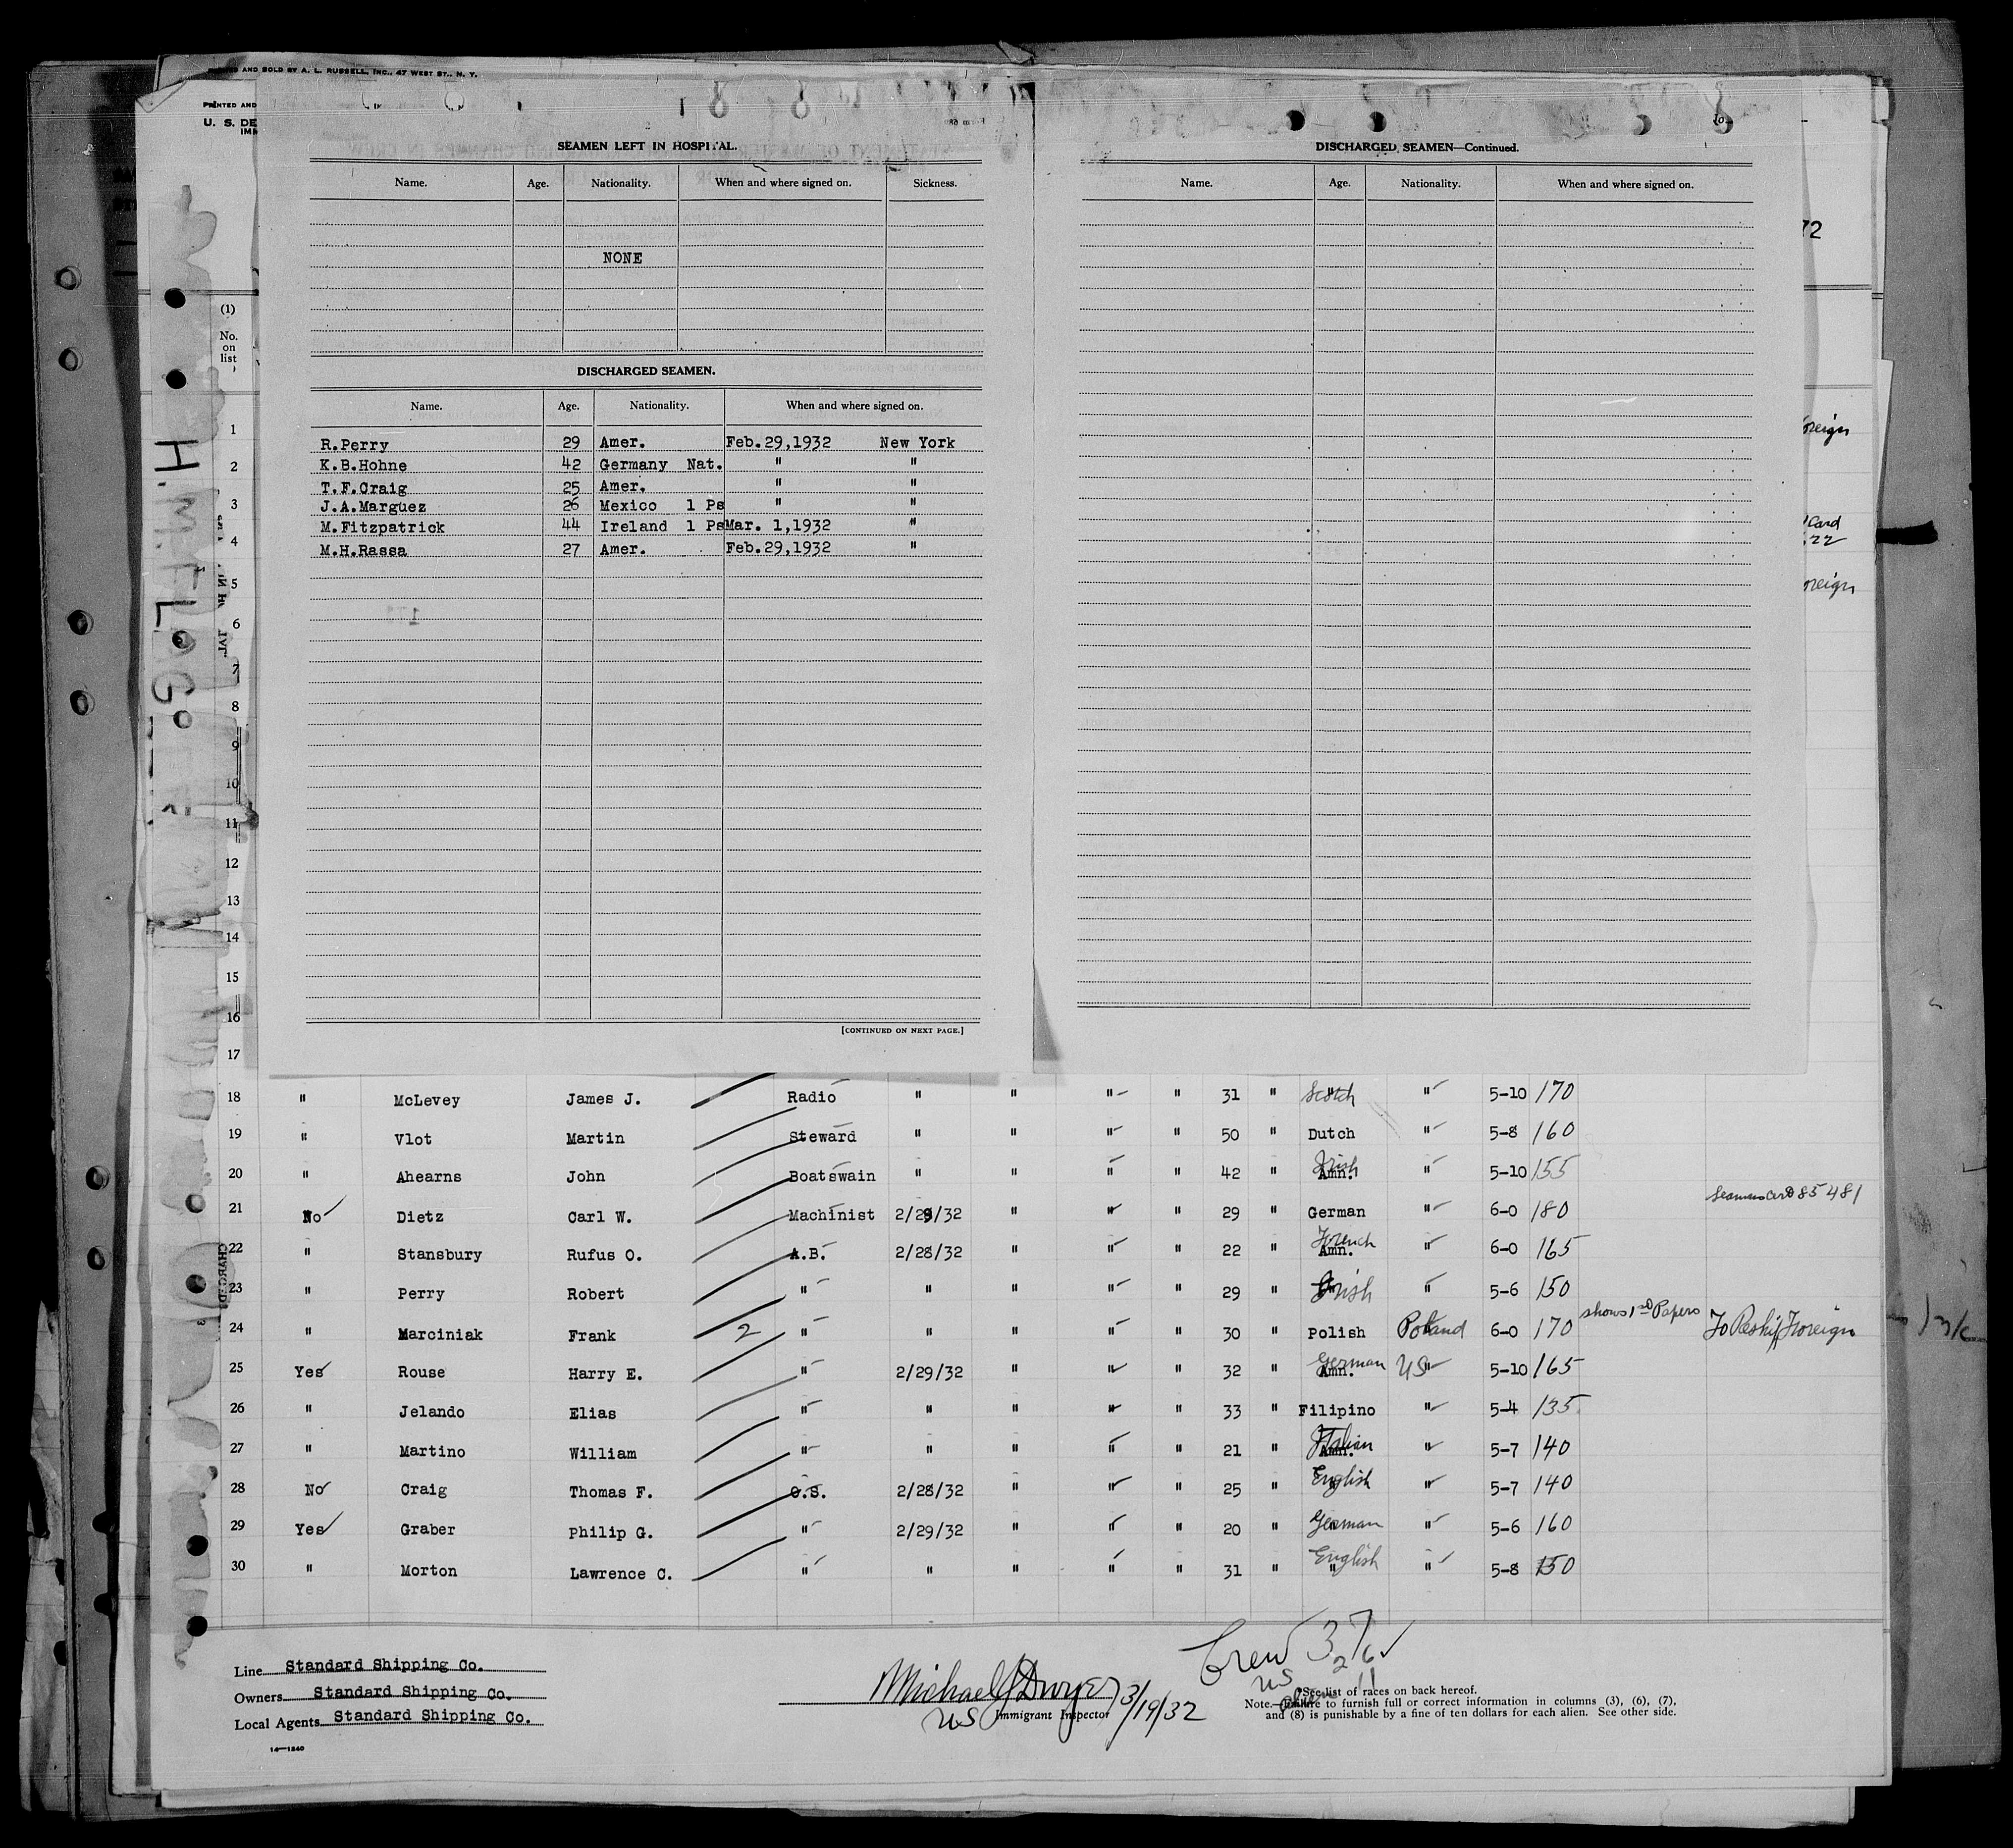 AND SOLD BY A. L. RUSSELL, INC., 47 WEST ST., N. Y.
PRINTED AND
U. S. DE
IMM
SEAMEN LEFT IN HOSPITAL.
Name. Age. Nationality. When and where signed on. Sickness.
NONE
DISCHARGED SEAMEN.
Name. Age. Nationality. When and where signed on.
R.Perry 29 Amer. Feb.29,1932 New York
K.B.Hohne 42 Germany Nat. " "
T.F.Craig 25 Amer. " "
J.A.Marguez 26 Mexico 1 Ps " "
M.Fitzpatrick 44 Ireland 1 Ps Mar. 1,1932 "
M.H.Rassa 27 Amer. Feb.29,1932 "
[CONTINUED ON NEXT PAGE.]
DISCHARGED SEAMEN—Continued.
Name. Age. Nationality. When and where signed on.
72
oreign
Card
22
oreign
H.M.FLAG
(1)
No.
on
list
1
2
3
4
5
6
7
8
9
10
11
12
13
14
15
16
17
18 " McLevey James J. Radio " " " " 31 " Scotch " 5-10 170
19 " Vlot Martin Steward " " " " 50 " Dutch " 5-8 160
20 " Ahearns John Boatswain " " " " 42 " Amn. Irish " 5-10 155
21 No Dietz Carl W. Machinist 2/29/32 " " " 29 " German " 6-0 180 Seamans Card 85481
22 " Stansbury Rufus O. A.B. 2/28/32 " " " 22 " Amn. French " 6-0 165
23 " Perry Robert " " " " " 29 " Irish " 5-6 150
24 " Marciniak Frank 2 " " " " " 30 " Polish Poland 6-0 170 shows 1st Papers To Reship Foreign
25 Yes Rouse Harry E. " 2/29/32 " " " 32 " Amn. German US " 5-10 165
26 " Jelando Elias " " " " " 33 " Filipino " 5-4 135
27 " Martino William " " " " " 21 " Amn. Italian " 5-7 140
28 No Craig Thomas F. O.S. 2/28/32 " " " 25 " " English " 5-7 140
29 Yes Graber Philip G. " 2/29/32 " " " 20 " " German " 5-6 160
30 " Morton Lawrence C. " " " " " 31 " " English " 5-8 150
Line Standard Shipping Co.
Owners Standard Shipping Co.
Local Agents Standard Shipping Co.
14—1240
Michael J Dwyer 3/19/32
US Immigrant Inspector
Crew 37
US 26
alien 11
See list of races on back hereof.
Note.—Failure to furnish full or correct information in columns (3), (6), (7),
and (8) is punishable by a fine of ten dollars for each alien. See other side.